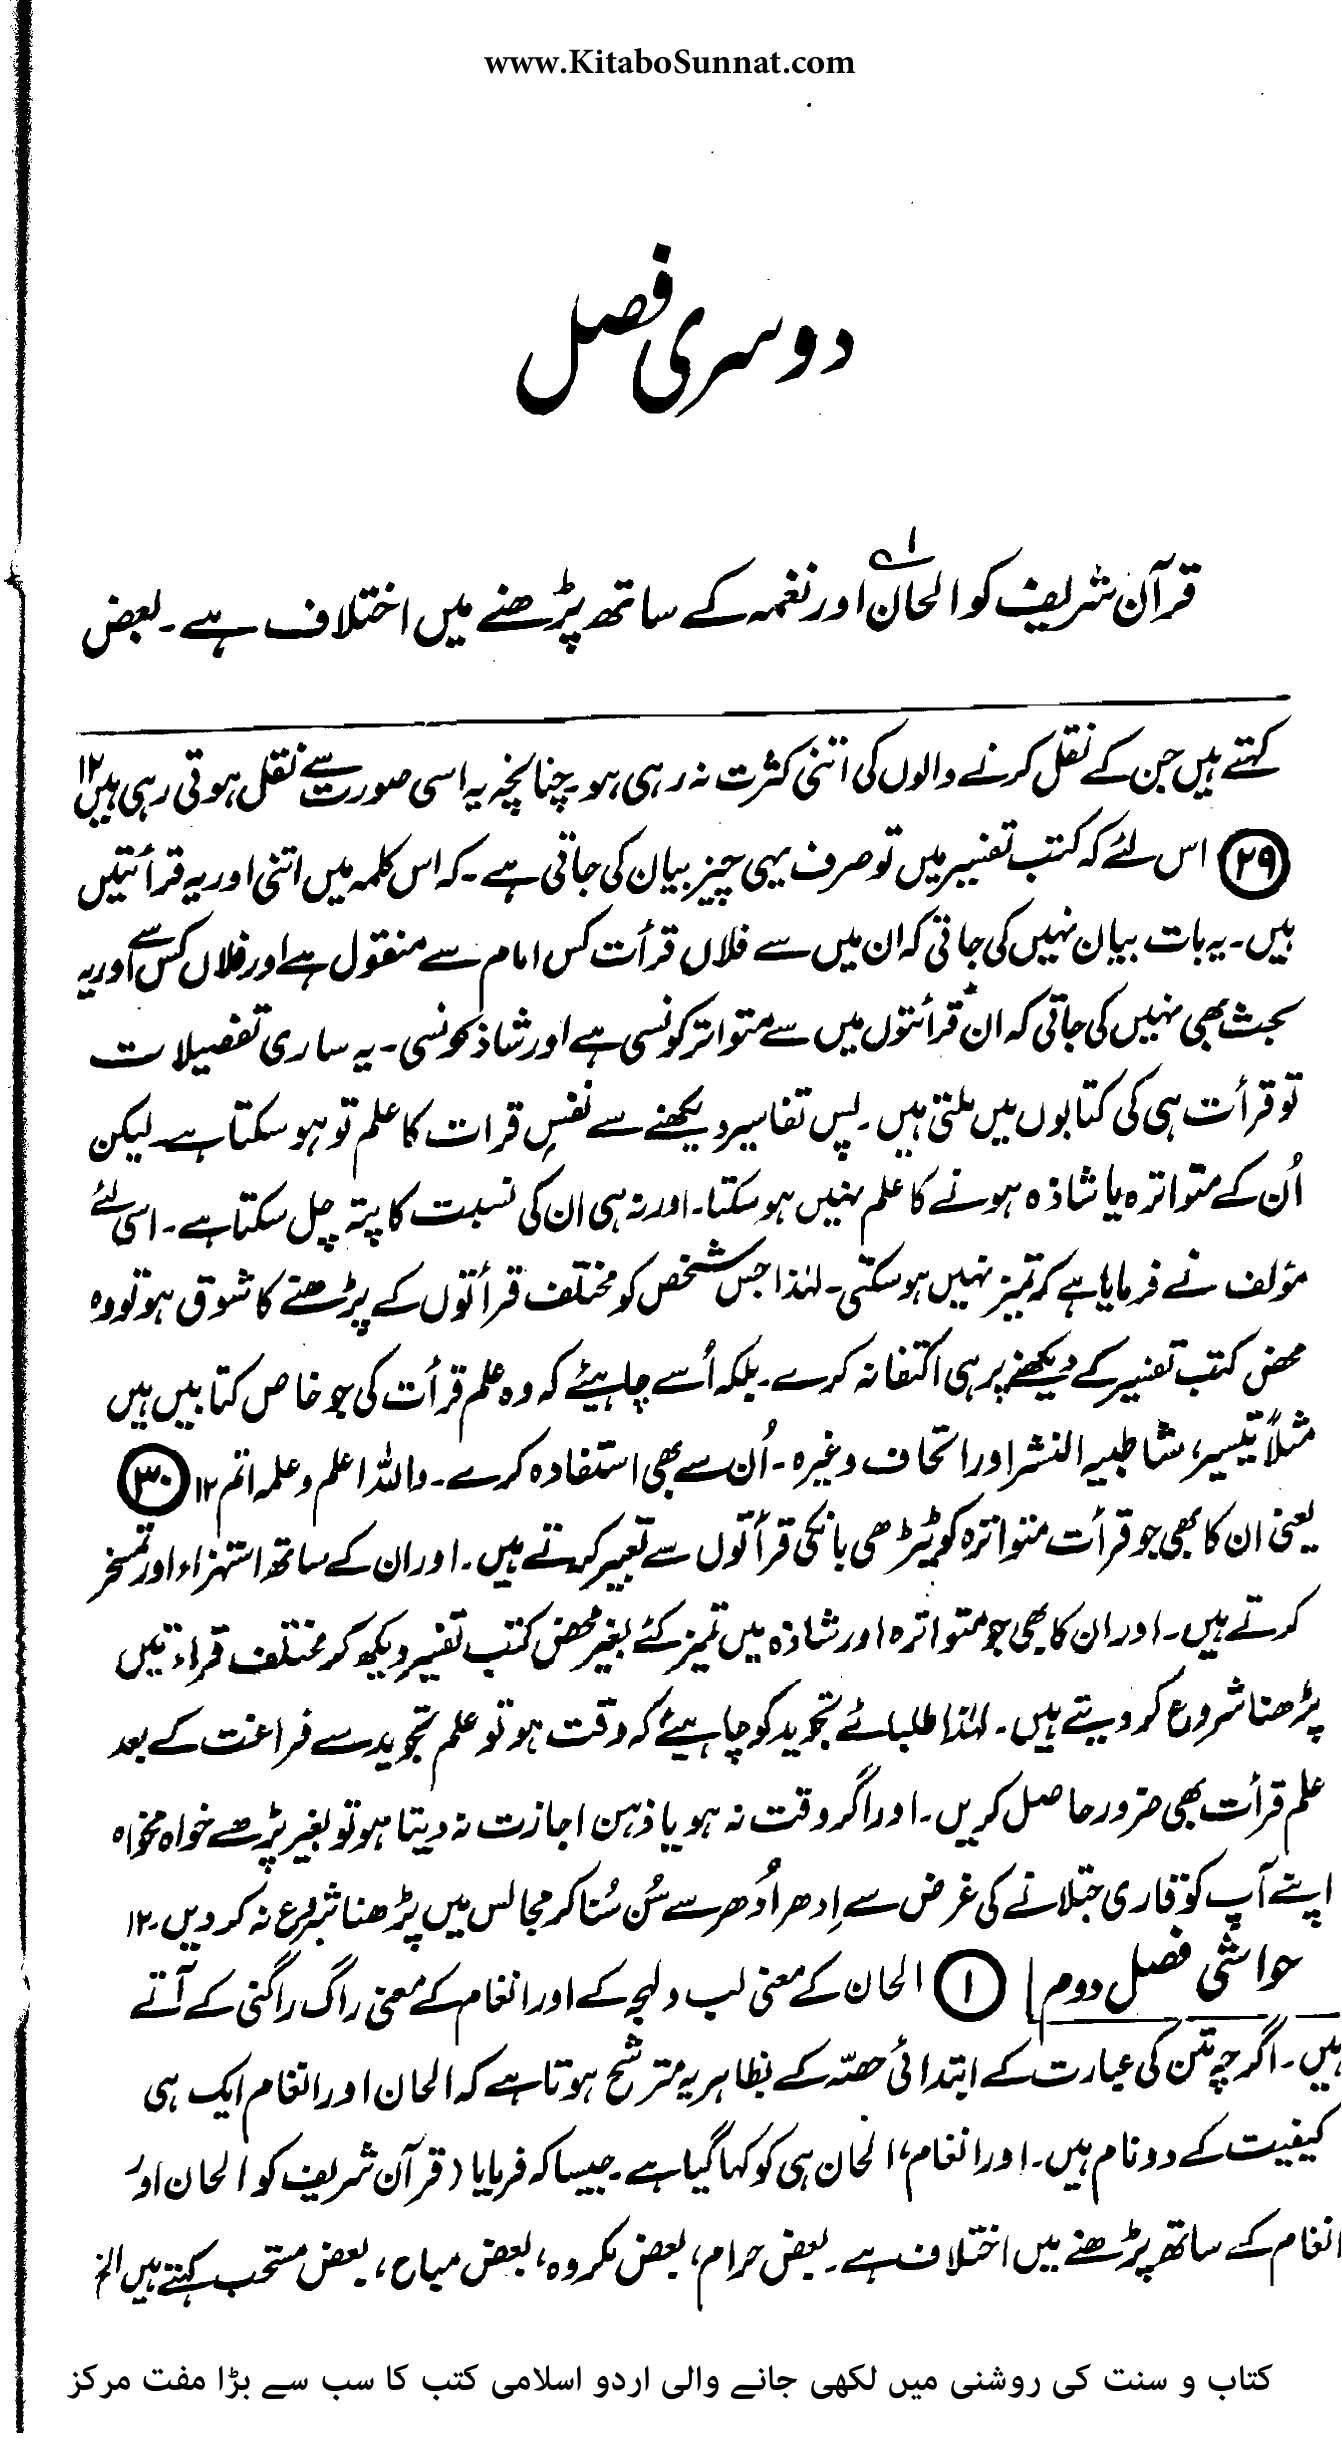 www.KitaboSunnat.com
دوسری فصل
قرآن شریف کو الحان۱ اور نغمہ کے ساتھ پڑھنے میں اختلاف ہے۔ بعض
کہتے ہیں جن کے نقل کرنے والوں کی اتنی کثرت نہ رہی ہو۔ چنانچہ یہ اسی صورت سے نقل ہوتی رہی ہیں ۱۲
۲۹ اس لئے کہ کتب تفسیر میں تو صرف یہی چیز بیان کی جاتی ہے۔ کہ اس کلمہ میں اتنی اور یہ قرأتیں
ہیں۔ یہ بات بیان نہیں کی جاتی کہ ان میں سے فلاں قرأت کس امام سے منقول ہے اور فلاں کس سے اور یہ
بحث بھی نہیں کی جاتی کہ ان قرأتوں میں سے متواتر کونسی ہے اور شاذ کونسی۔ یہ ساری تفصیلات
تو قرأت ہی کی کتابوں میں ملتی ہیں۔ پس تفاسیر دیکھنے سے نفسِ قرات کا علم تو ہو سکتا ہے۔ لیکن
اُن کے متواترہ یا شاذہ ہونے کا علم نہیں ہو سکتا۔ اور نہ ہی ان کی نسبت کا پتہ چل سکتا ہے۔ اسی لئے
مؤلف نے فرمایا ہے کہ تمیز نہیں ہو سکتی۔ لہٰذا جس شخص کو مختلف قرأتوں کے پڑھنے کا شوق ہو تو وہ
محض کتب تفسیر کے دیکھنے پر ہی اکتفا نہ کرے۔ بلکہ اُسے چاہیئے کہ وہ علم قرأت کی جو خاص کتابیں ہیں
مثلاً تیسیر، شاطبیہ النشر اور اتحاف وغیرہ۔ اُن سے بھی استفادہ کرے۔ واللہ اعلم وعلمہ اتم ۱۲ ۳۰
یعنی ان کا بھی جو قرأت متواترہ کو ٹیڑھی بانکی قرأتوں سے تعبیر کرتے ہیں۔ اور ان کے ساتھ استہزاء اور تمسخر
کرتے ہیں۔ اور ان کا بھی جو متواترہ اور شاذہ میں تمیز کئے بغیر محض کتب تفسیر دیکھ کر مختلف قراءتیں
پڑھنا شروع کر دیتے ہیں۔ لہٰذا طلبائے تجوید کو چاہیئے کہ وقت ہو تو علم تجوید سے فراغت کے بعد
علم قرأت بھی ضرور حاصل کریں۔ اور اگر وقت نہ ہو یا ذہن اجازت نہ دیتا ہو تو بغیر پڑھے خواہ مخواہ
اپنے آپ کو قاری جتلانے کی غرض سے اِدھر اُدھر سے سُن سُنا کر مجالس میں پڑھنا شروع نہ کر دیں۔ ۱۲
حواشی فصل دوم ۱ الحان کے معنی لب ولہجہ کے اور انغام کے معنی راگ راگنی کے آتے
ہیں۔ اگرچہ متن کی عبارت کے ابتدائی حصّہ کے بظاہر یہ مترشح ہوتا ہے کہ الحان اور انغام ایک ہی
کیفیت کے دو نام ہیں۔ اور انغام، الحان ہی کو کہا گیا ہے۔ جیسا کہ فرمایا (قرآن شریف کو الحان اور
انغام کے ساتھ پڑھنے میں اختلاف ہے۔ بعض حرام، بعض مکروہ، بعض مباح، بعض مستحب کہتے ہیں الخ
کتاب و سنت کی روشنی میں لکھی جانے والی اردو اسلامی کتب کا سب سے بڑا مفت مرکز